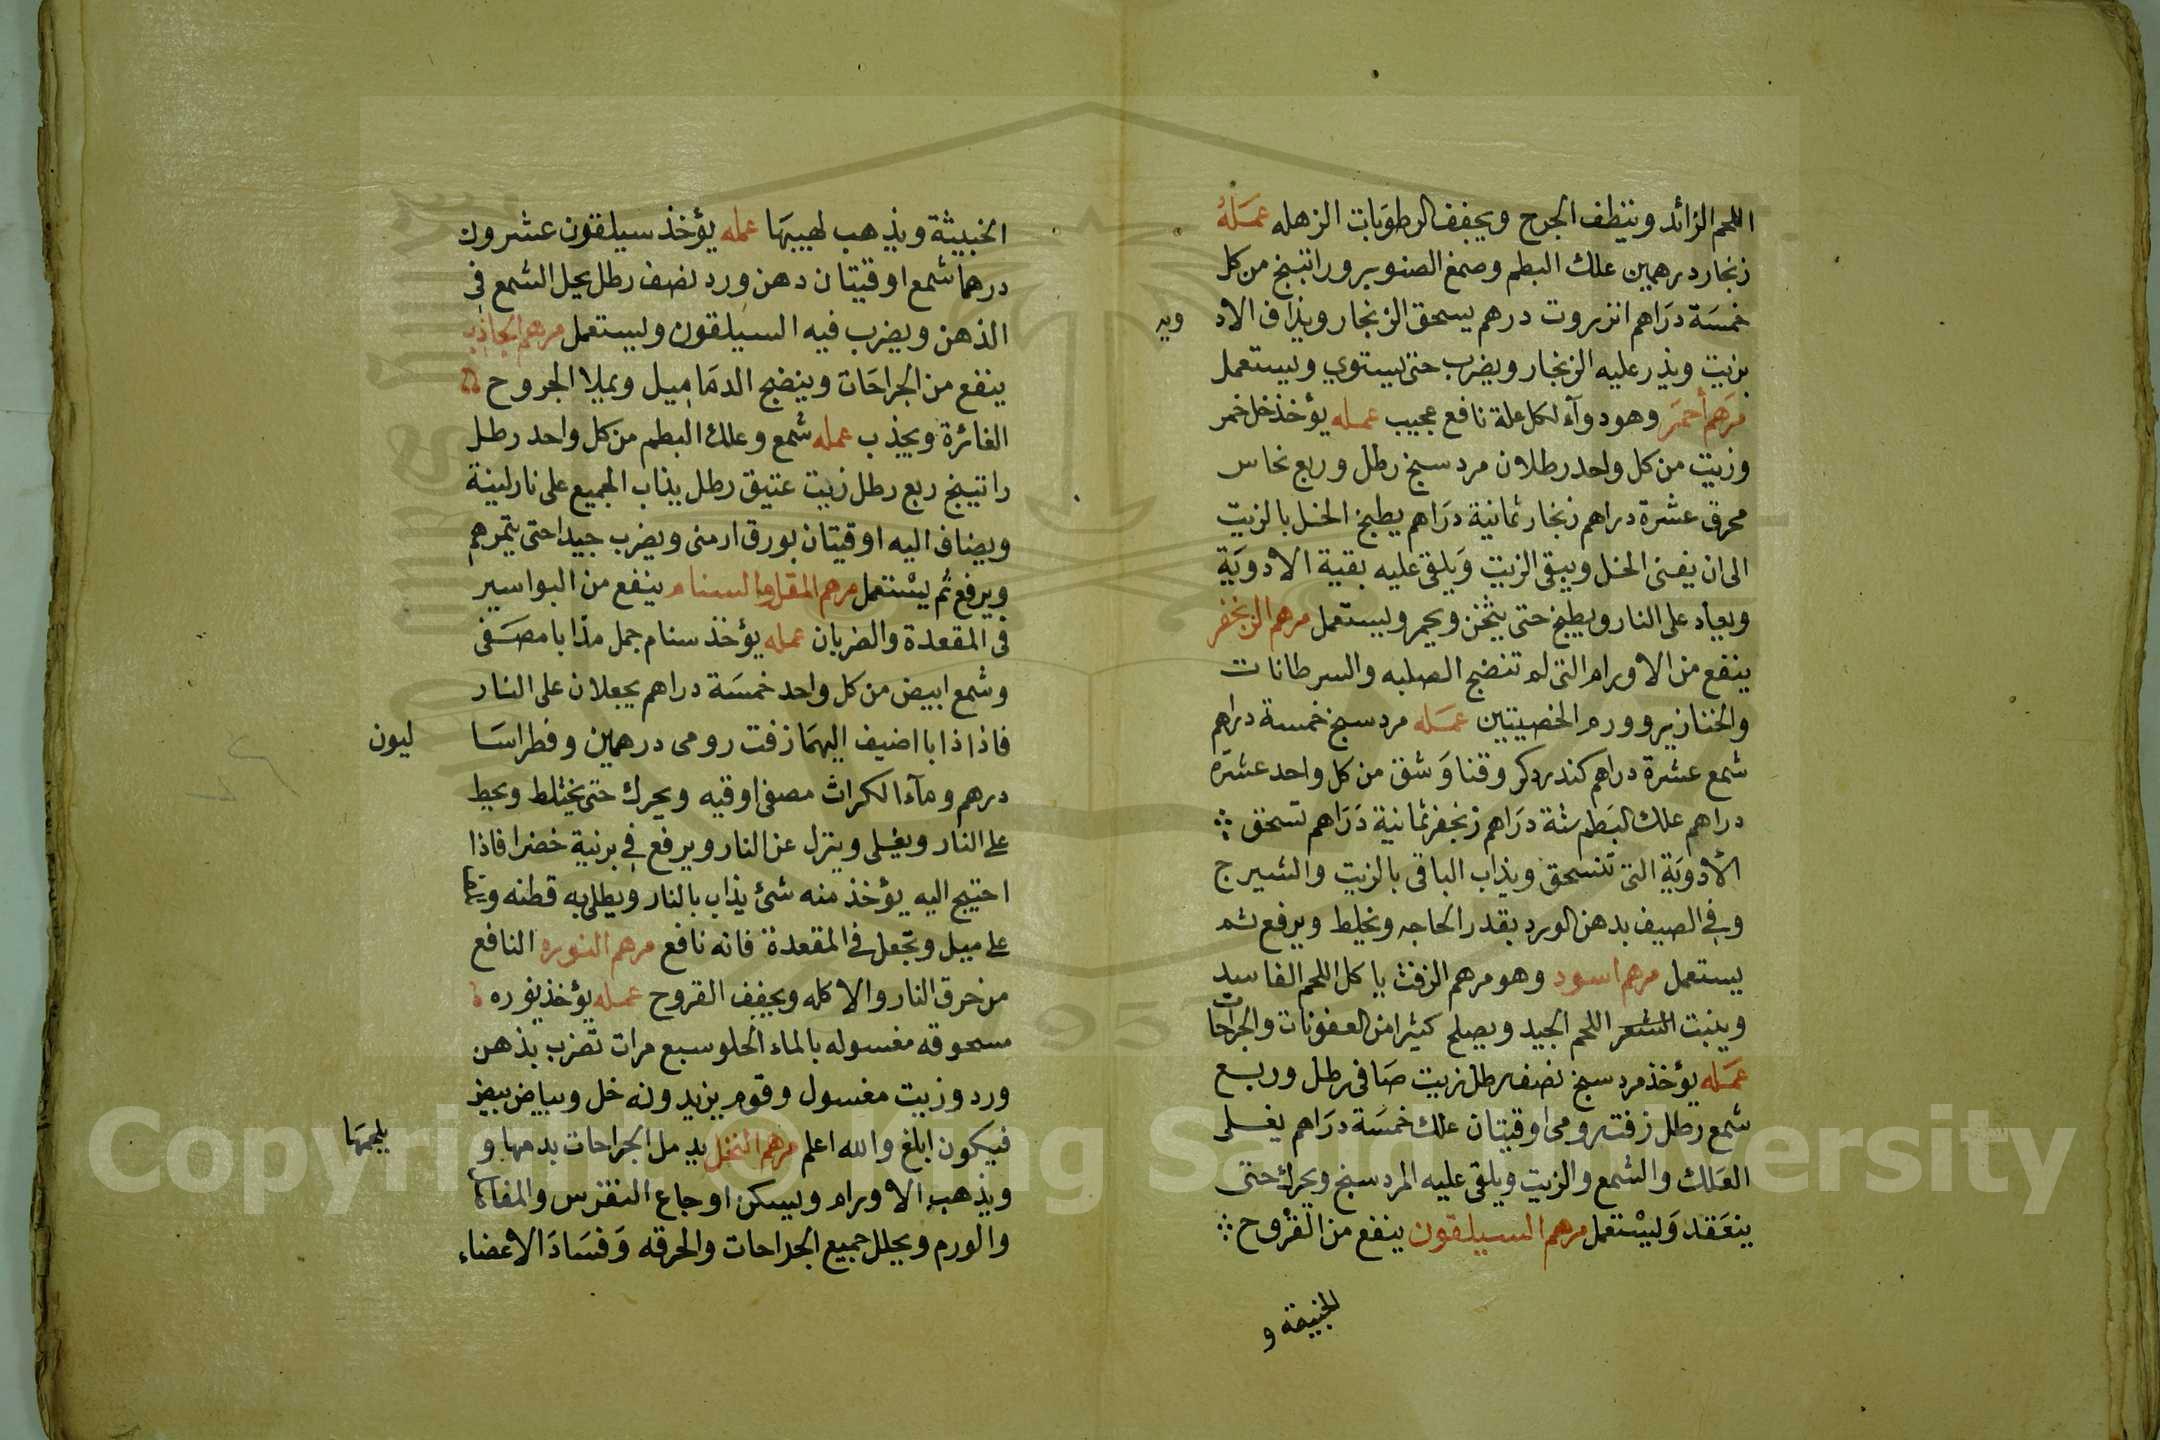 اللحم الزائد وينظف الجرح ويجفف الرطوبات الزهله عمَله
زنجار درهمين علك البطم وصمغ الصنوبر وراتينج من كل
خمسَة درَاهم انزروت درهم يسحق الزنجار ويذاف الاد
ويه
بزيت ويذر عليه الزنجار ويضرب حتى يستوي ويستعمل
مَرهم أحمَر وهو دوآء لكل علة نافع عجيب عمله يؤخذ خل خمر
وزيت من كل واحد رطلان مرد سبخ رطل وربع نحاس
محرق عشرة دراهم زنجار ثمانية درَاهم يطبخ الخل بالزيت
الى ان يفنى الخل ويبقى الزيت وَيلقى عليه بقية الادويَة
ويعاد على النار ويطبخ حتى يثخن ويحمر ويستعمل مرهم الزنجفر
ينفع من الاورام التى لم تنضج الصلبه والسرطانات
والخنازير وورم الخصيتين عمَله مرد سبخ خمسة دراهم
شمع عشرة دراهم كندر ذكر وقنا وَشق من كل واحد عشرة
دراهم علك البَطم ستة درَاهم زنجفر ثمانية دَرَاهم تسحق
الأدويَة التى تنسحق ويذاب الباقى بالزيت والشيرج
وفي الصيف بدهن الورد بقدر الحاجه ويخلط ويرفع ثم
يستعمل مرهم اسود وهو مرهم الزفت ياكل اللحم الفاسد
وينبت الشعر اللحم الجيد ويصلح كثيرا من العفونات والجراحات
عمَله يؤخذ مرد سبخ نصف رطل زيت صَافى رطل وربع
شمع رطل زفت رومى اوقيتان علك خمسَة درَاهم يغلى
العَلك والشمع والزيت ويلقى عليه المرد سبخ ويحرك حتى
ينعَقد وَيسْتعمل مرهم السيلقون ينفع من القرُوح
الخبيثة و
الخبيثة ويذهب لهيبهَا عمله يؤخذ سيلقون عشرون
درهما شمع اوقيتان دهن ورد نصف رطل يحل الشمع في
الذهن ويضرب فيه السيلقون ويستعمل مرهم الجاذب
ينفع من الجراحَات وينضج الدمَاميل ويملا الجروح
الغائرة ويجذب عمله شمع وعلك البطم من كل واحد رطل
راتينج ربع رطل زيت عتيق رطل يذاب الجميع على نار لينة
ويضاف اليه اوقيتان بورق ارمنى ويضرب جيدا حتى يتمرهم
ويرفع ثم يسْتعمل مرهم المقل والسنام ينفع من البواسير
فى المقعدة والضربان عمله يؤخذ سنام جمل مذابا مصَفى
وشمع ابيض من كل واحد خمسَة دراهم يجعلان على النار
فاذا ذابا اضيف اليهمَا زفت رومى درهمين وفطراسَا
ليون
درهم ومآء الكراث مصفى اوقيه ويحرك حتى يختلط ويحط
على النار ويغلى وينزل عن النار ويرفع في برنية خضرا فاذا
احتيج اليه يؤخذ منه شئ يذاب بالنار ويطلى به قطنه
على ميل وتجعل فى المقعدة فانه نافع مرهم النوره النافع
من حرق النار والاكله ويجفف القروح عمله يؤخذ نوره
مسحوقه مغسوله بالماء الحلو سبع مرات تضرب بذهن
ورد وزيت مغسول وقوم يزيدونه خل وبياض بيض
فيكون ابلغ والله اعلم مرهم النخل يدمل الجراحات بدمها و
يلحمهَا
ويذهب الاورام ويسكن اوجاع النقرس والمفاصل
والورم ويحلل جميع الجراحات والحرقه وَفسَادَ الاعضاء
Copyright © King Saud University